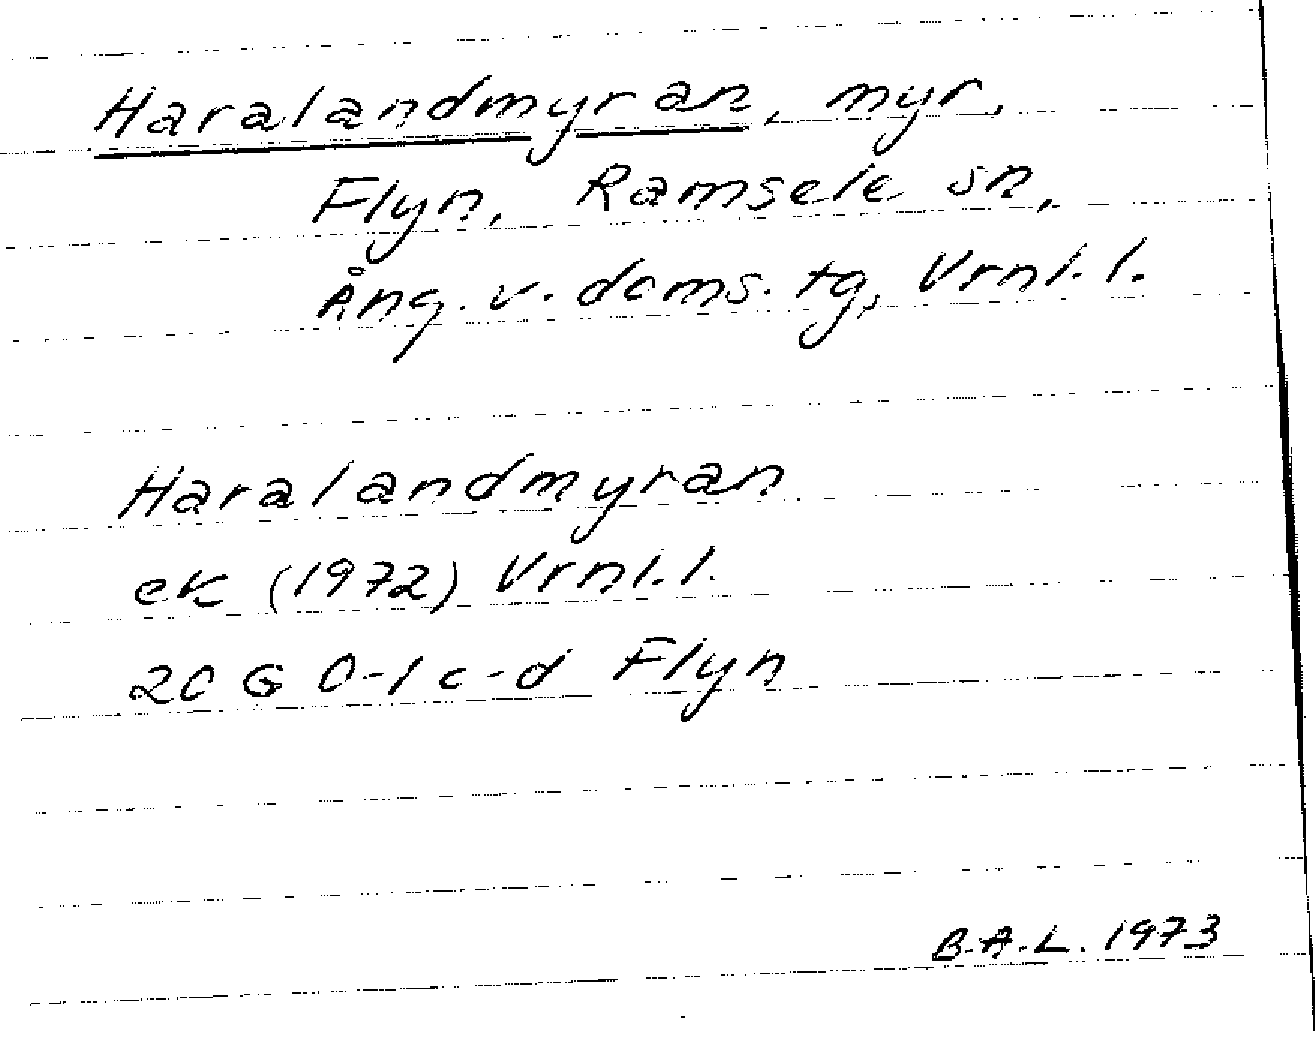 Haralandmyran, myr,
Flyn, Ramsele sn,
Ång. v. doms. tg, Vrnl. l.
Haralandmyran
ek (1972) Vrnl. l.
20 G 0-1 c-d Flyn
B.A.L. 1973